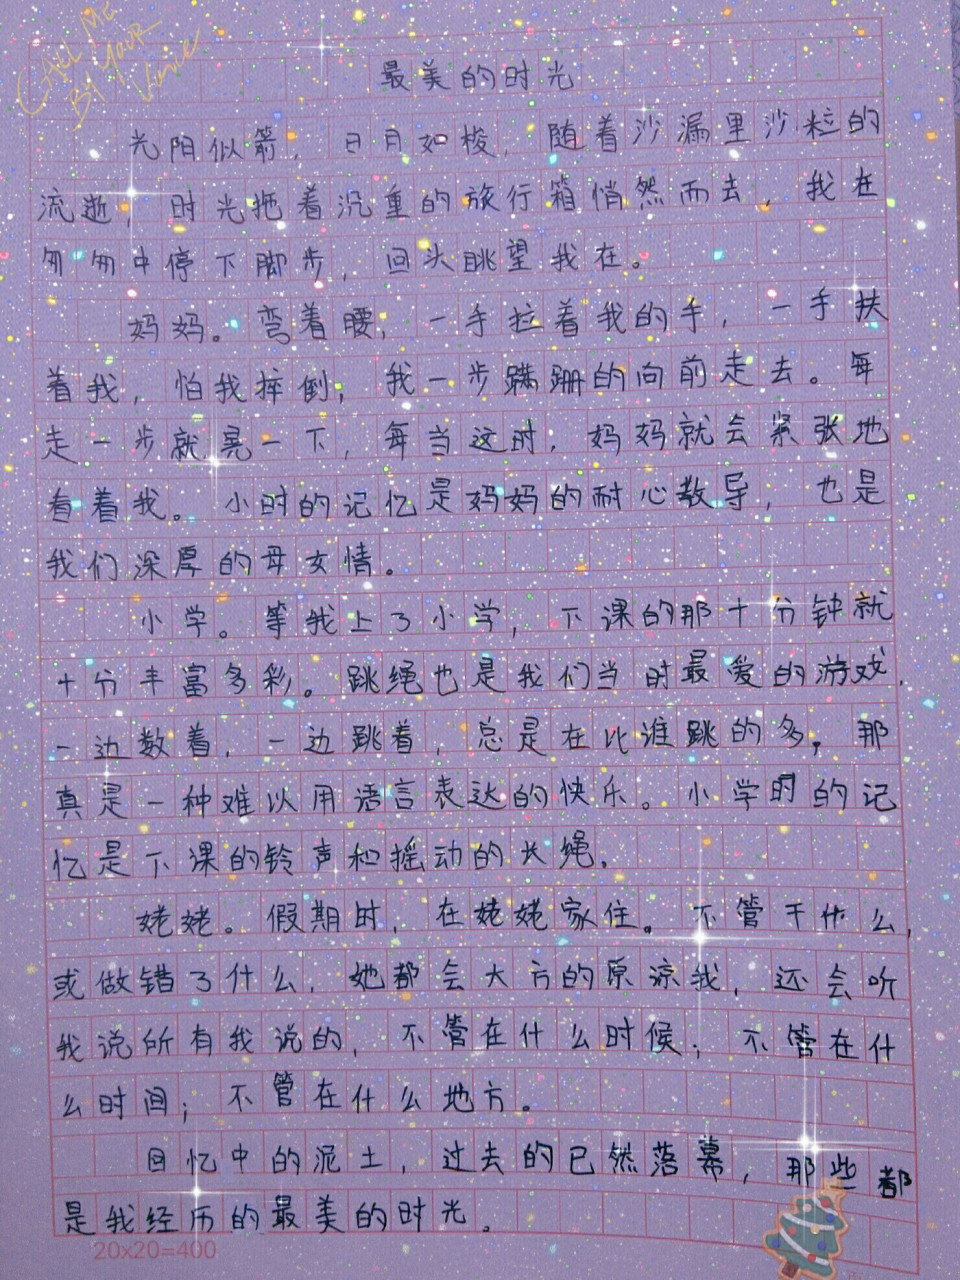 CALL ME
BY YOUR
最美的时光
光阳似箭，日月如梭，随着沙漏里沙粒的
流逝，时光拖着沉重的旅行箱悄然而去，我在
匆匆中停下脚步，回头眺望我在。
妈妈。弯着腰，一手拉着我的手，一手扶
着我，怕我摔倒，我一步蹒跚的向前走去。每
走一步就晃一下，每当这时，妈妈就会紧张地
看着我。小时的记忆是妈妈的耐心教导，也是
我们深厚的母女情。
小学。等我上了小学，下课的那十分钟就
十分丰富多彩。跳绳也是我们当时最爱的游戏，
一边数着，一边跳着，总是在比谁跳的多，那
真是一种难以用语言表达的快乐。小学时的记
忆是下课的铃声和摇动的长绳。
姥姥。假期时，在姥姥家住。不管干什么，
或做错了什么，她都会大方的原凉我，还会听
我说所有我说的，不管在什么时候；不管在什
么时间；不管在什么地方。
回忆中的泥土，过去的已然落幕，那些都
是我经历的最美的时光。
20x20=400